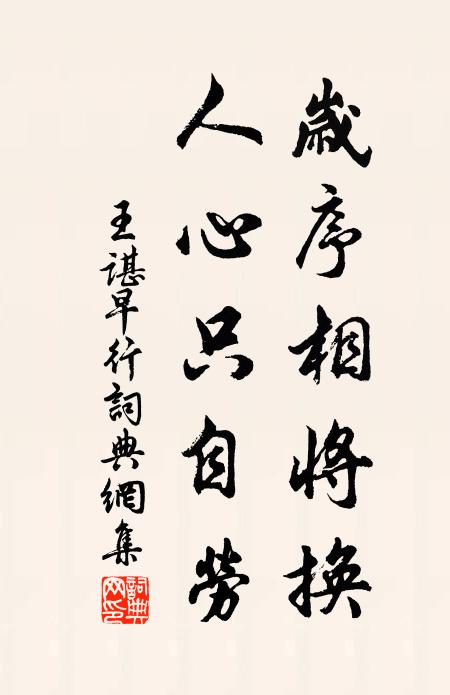 歲序相將換
人心只自勞
王諶早行詞典網集
詞典網印